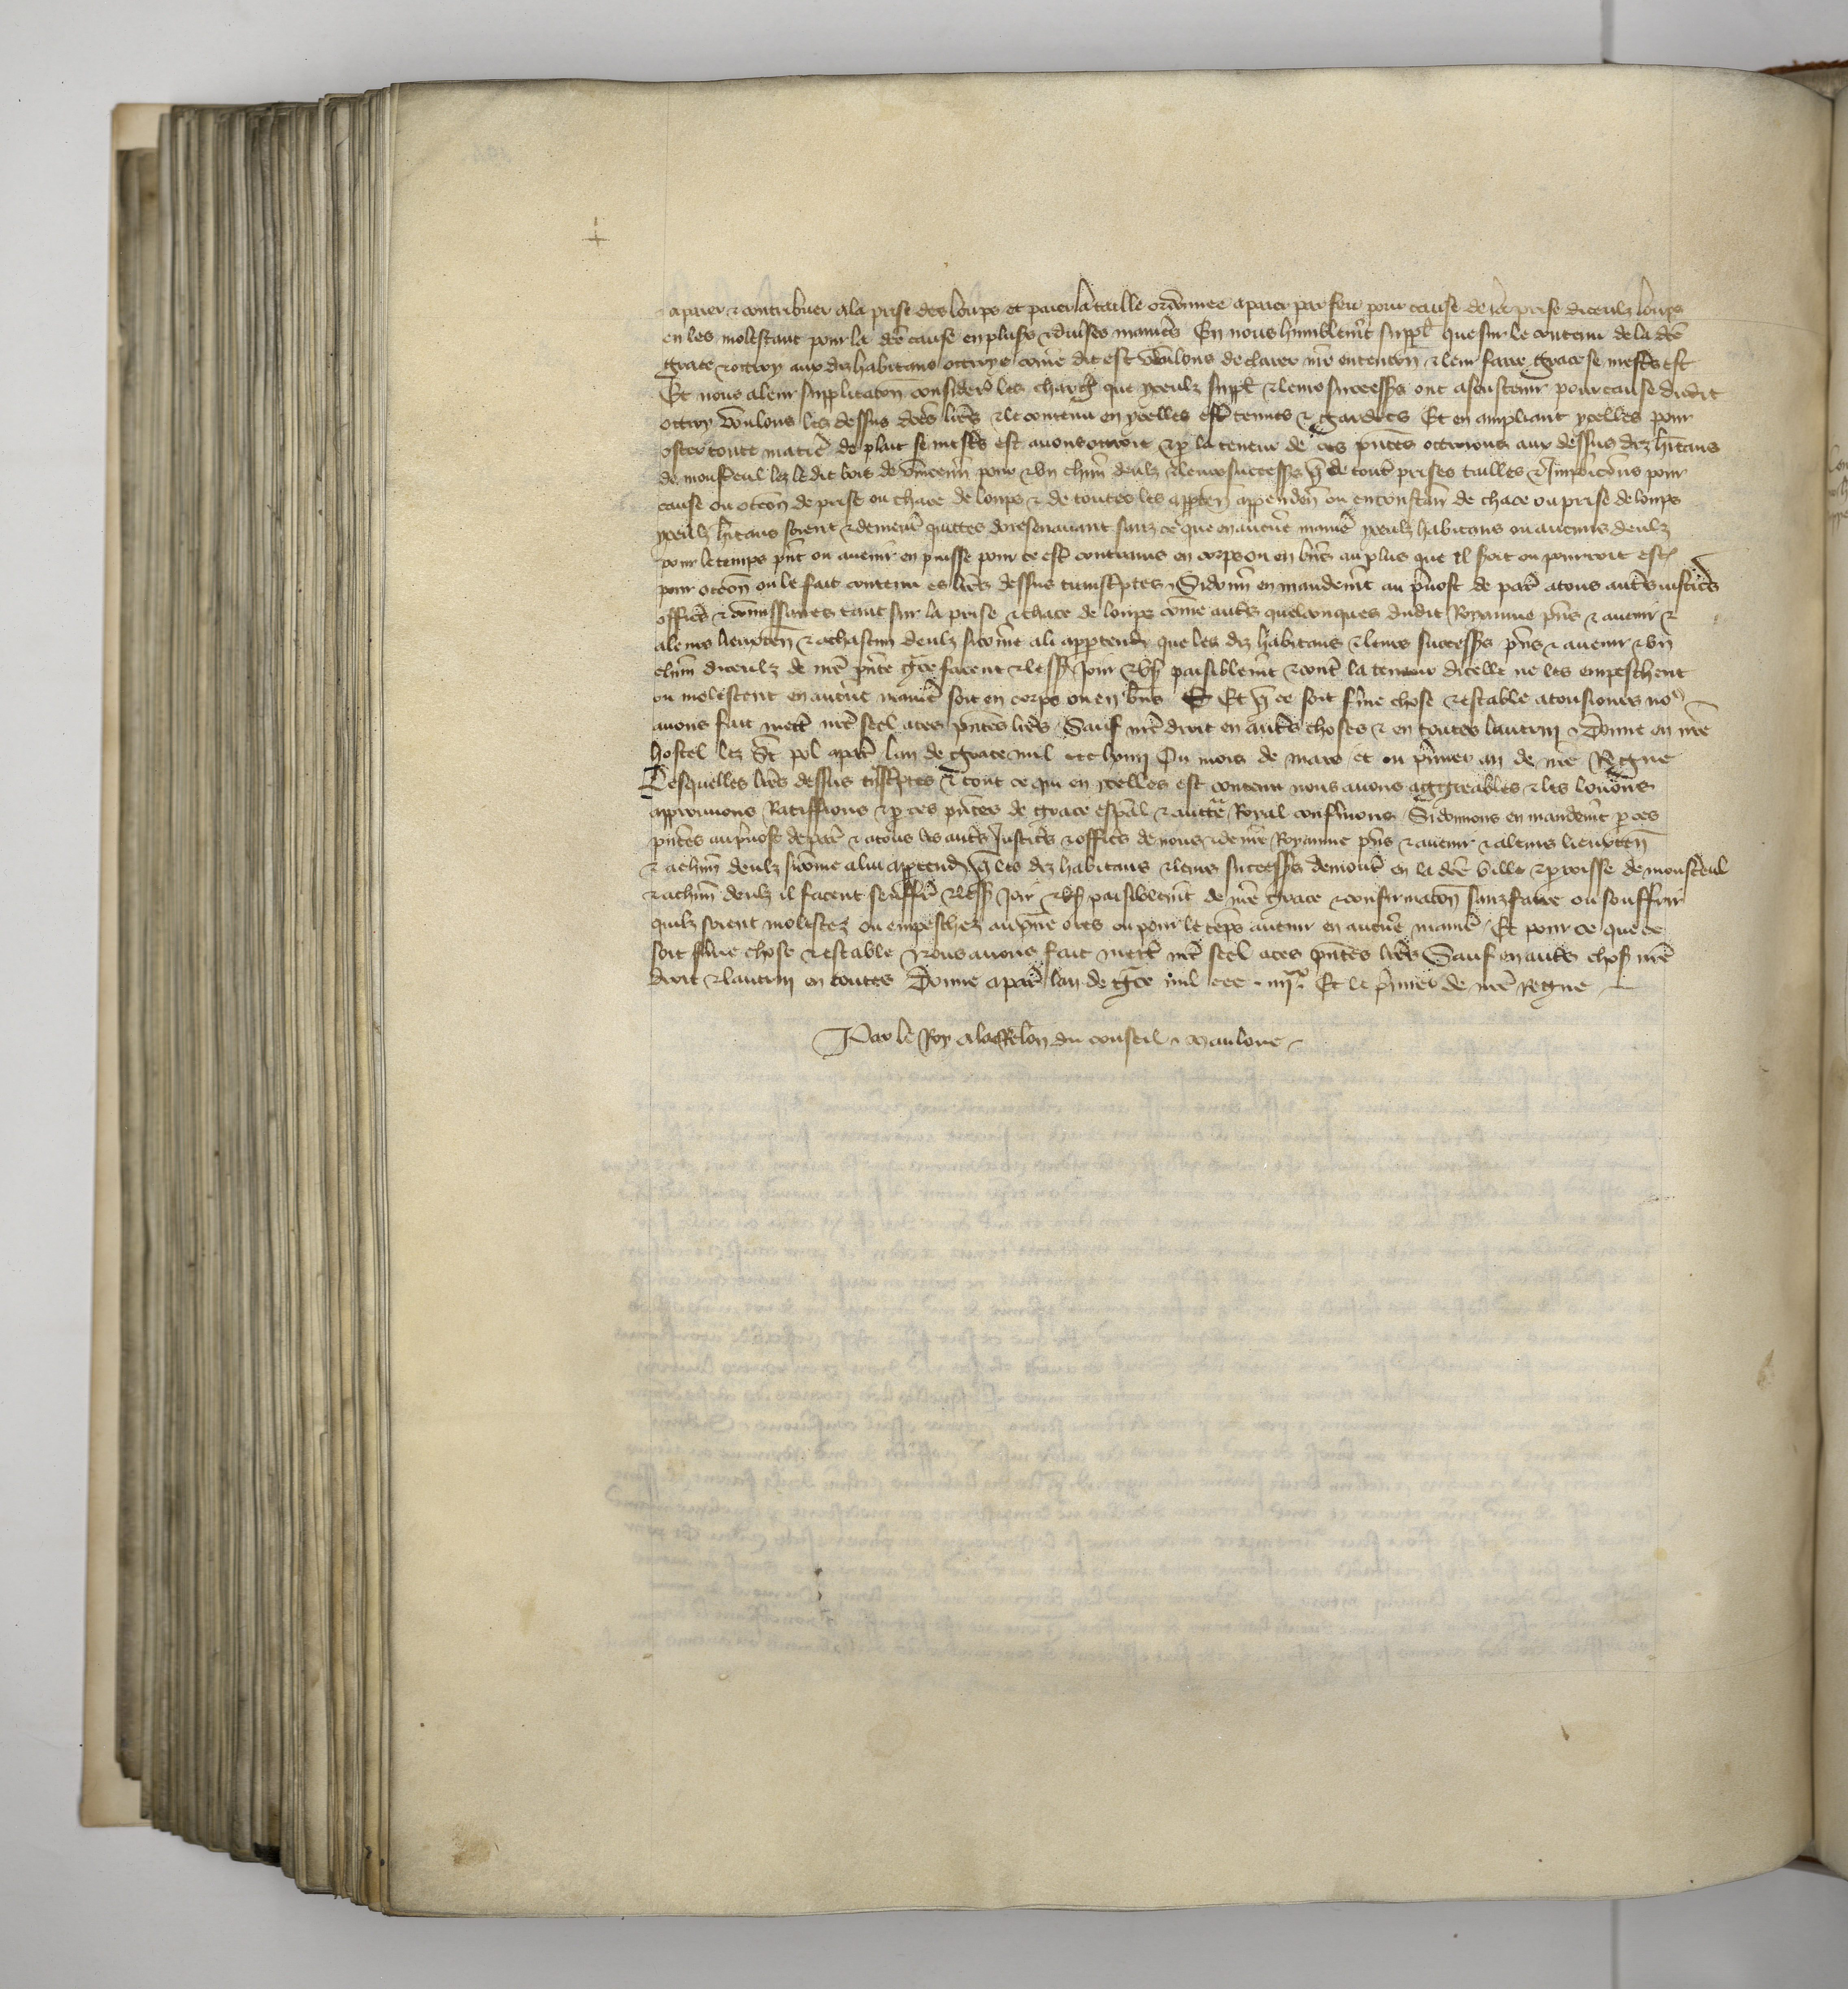 a paier & contribuer a la prise des loups et paier la taille ordonnee a paier par feu pour cause de prise diceulz loups
en les molestant pour la dce cause en plusrs & diuses manies Si nous humblemt suppl que sur le contenu de la dce
grace & ottroy aux diz habitans ottroye come dit est voulons declarer nre entention & leur faire grace se mestis est
Et nous a leur supplicaton considere les charg que yceulz suppl & leurs successrs ont a soustenir pour cause dudit
ottroy voulons les dessus dces lres & le contenu en ycelles estre tenues & gardees Et en ampliant ycelles pour
oster toute matie de plait se mestis est auons ottroie & p la teneur de ces pntes ottroions aux dessus diz hitans
de monsteul lez le dit bois de vincennes pour & vn chun deulz & leurs successrs q de toutes prises tailles & Impoicions pour
cause ou occon de prise ou chace de loups & de toutes les apparten appenden ou en de chace ou prise de loups
yceulz hitans soient & demeurt quittes doresenauant sanz ce que en aucune manie yceulz habitans ou aucuns deulz
pour le temps pnt ou auenir en puisse pour ce estre contrains en corps ou en biens au plus que il soit ou pourroit estre
pour occon ou le fait contenu es lres dessus transcriptes Si donnons en mandemt au preuost de paris a tous autres iusticiers
officiers & commissaires tant sur la prise & chace de loups come autres quelconques dudit Royaume pns & auenir &
a leurs lieuxten & a chascun deulz si come a li appartendra que les diz habitans & leurs successrs pns & auenir & vn
chun diceulz de nre pnte gce facent & lessent Joir & user paisiblemt & contre la teneur dicelle ne les empeschent
ou molestent en aucune manie soit en corps ou en biens Et q ce soit ferme chose & estable a tousiours nous
auons fait mettre nre seel a ces pntes lres Sauf nre droit en autres choses & en toutes lautruy Donne en nre
hostel lez St pol a paris lan de grace mil ccc lxiiij Ou mois de mars et ou premier an de nre Regne
Desquelles lres dessus transcriptes & tout ce qui en ycelles est contenu nous auons aggreables & les louons
approuuons Ratiffions & p ces pntes de grace espal & auctte Royal confermons Si donnons en mandemt p ces
pntes au preuost de paris & a tous les autres Justiciers & officiers de nous & de nre Royaume pns & auenir & a leurs lieuxten
& a chun deulz si come a lui appartendra q les diz habitans & leurs successrs demourt en la dce ville & proisse de monsteul
& a chun deulz il facent seuffrent & lessent Joir & user paisiblemt de nre grace & confirmacon sanz faire ou souffrir
quilz soient molestez ou empeschez au pnt ores ou pour le teps auenir en aucune manie Et pour ce que ce
soit ferme chose & estable Nous auons fait mettre nre seel a ces pntes lres Sauf en autres choses nre
droit & lautruy en toutes Donne a paris lan de gce mil ccc iiijxx Et le premier de nre Regne
Par le Roy a la Relon du conseil maulone